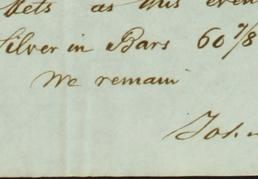 as this even
Silver in Bars 60 7/8
We remain
Jos.